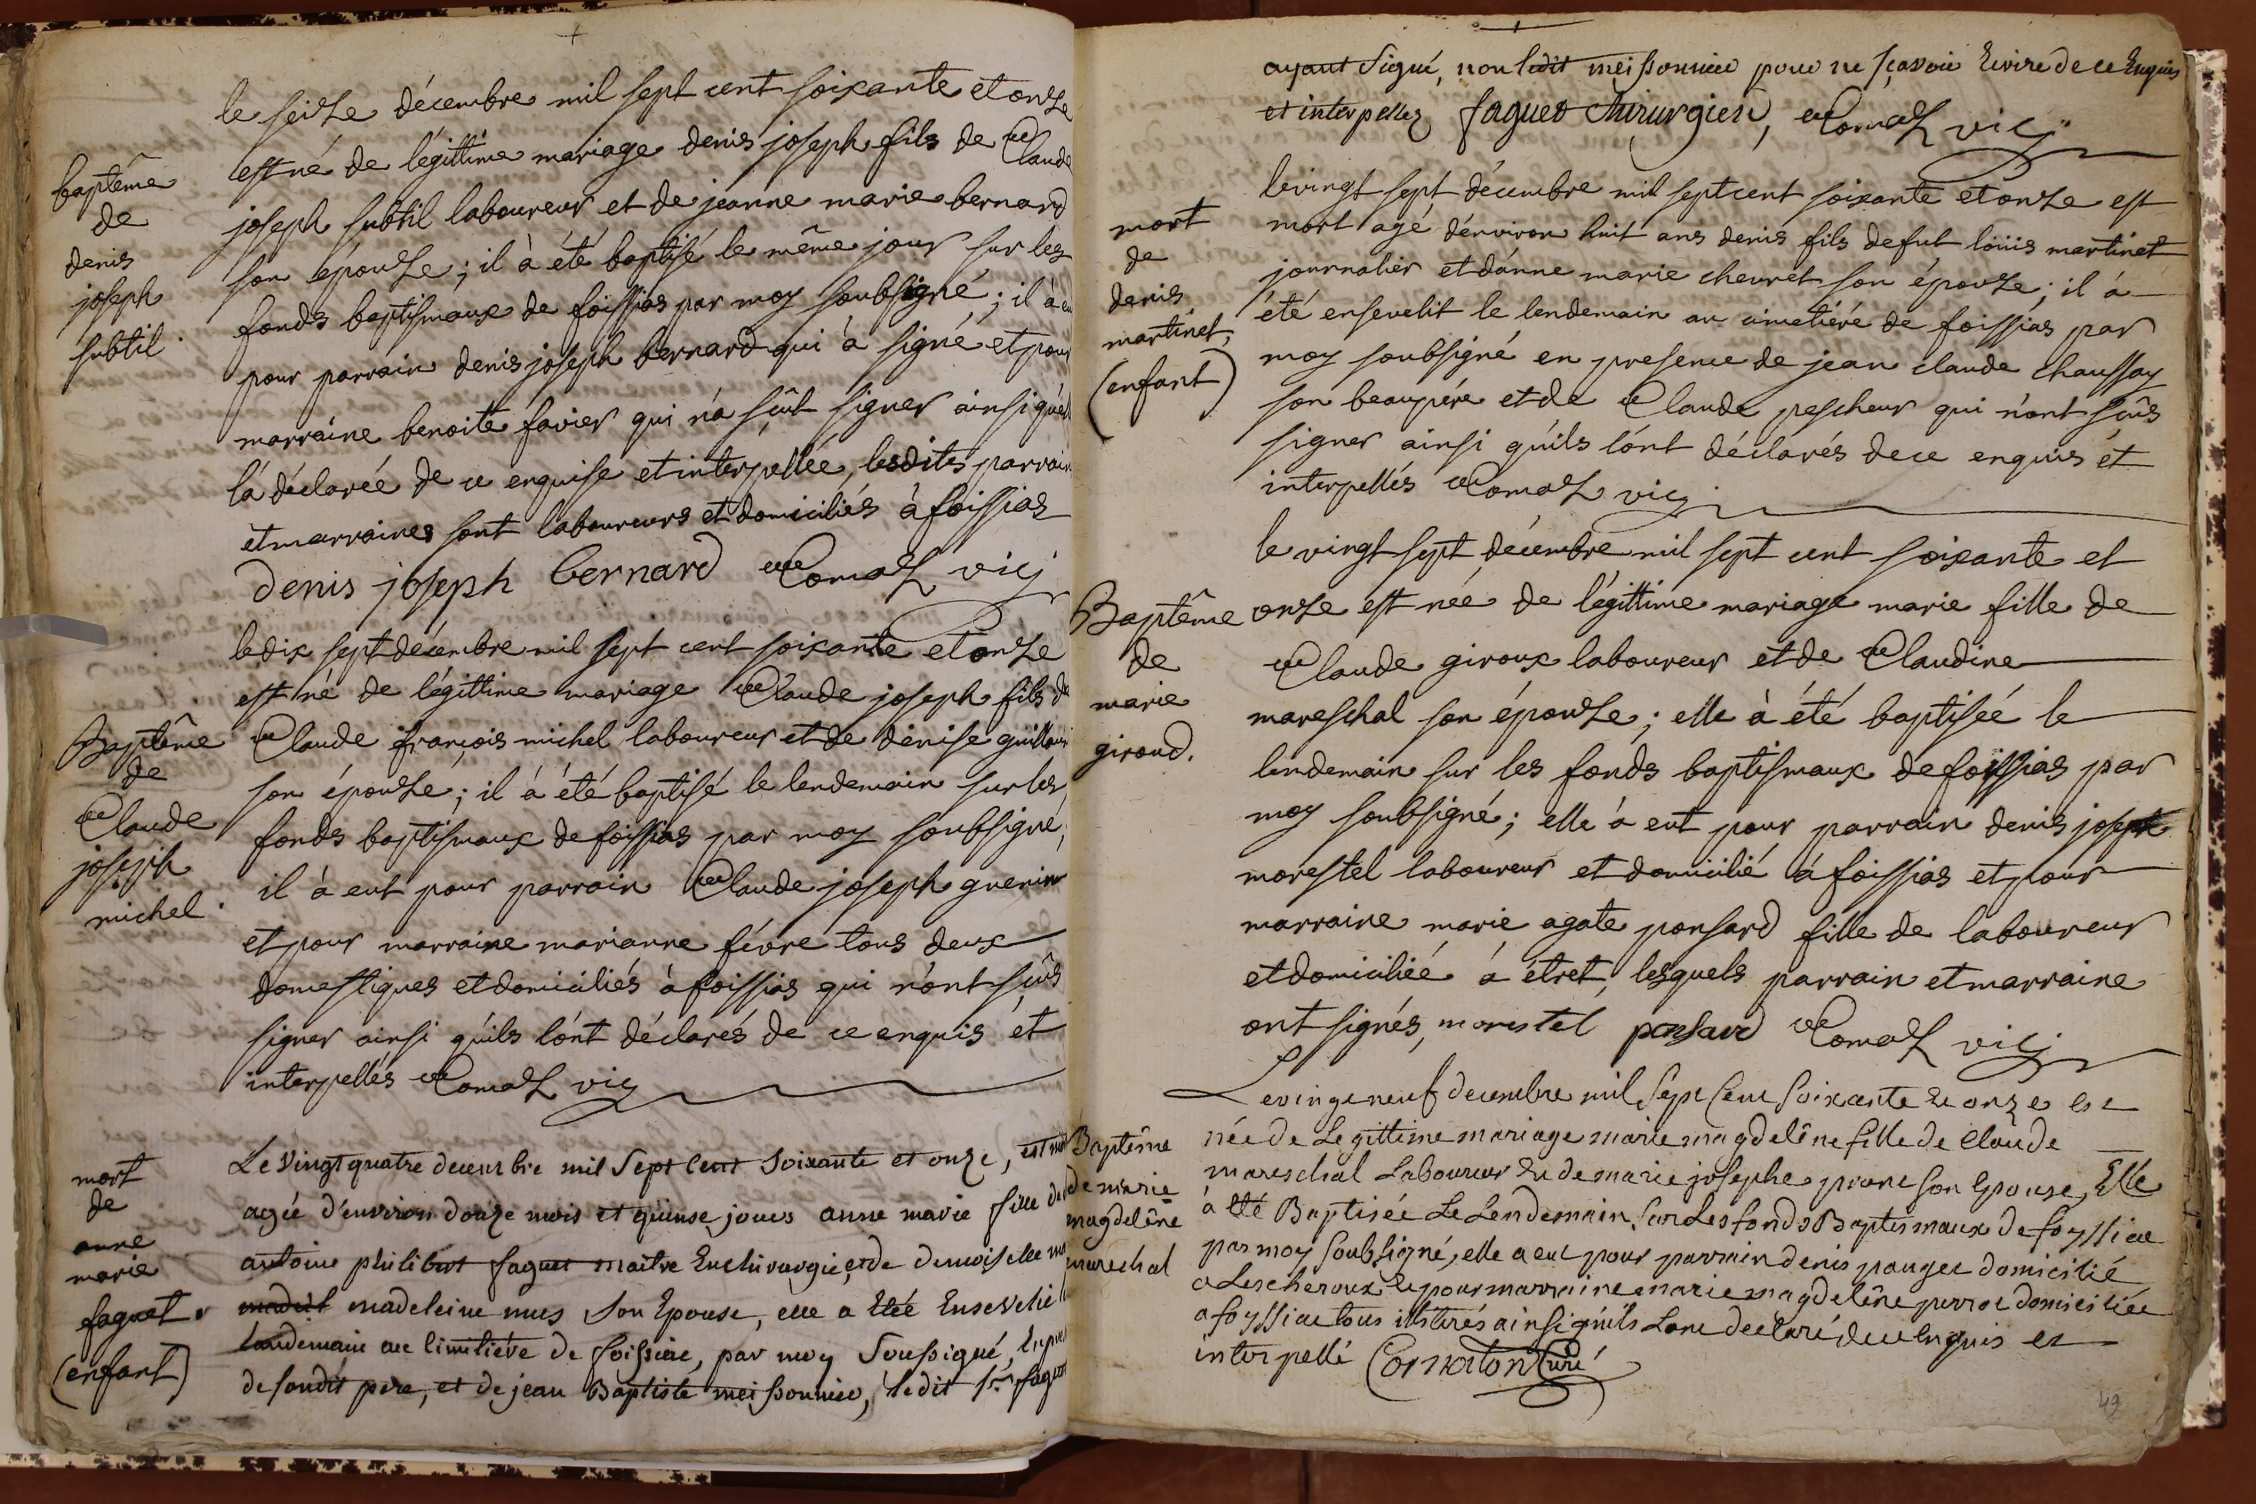 le seize décembre mil sept cent soixante et onze
est né de légittime mariage denis joseph fils de Claude
joseph subtil laboureur et de jeanne marie bernard
son épouze ; il à été baptisé le même jour sur les
fonds baptismaux de foissias par moy soubsigné ; il à eu
pour parrain denis joseph bernard qui à signé et pour
marraine benoite favier qui n'a sçût signer ainsi qu'el
l'a déclarée de ce enquise et interpellée, lesdits parrain
et marraines sont laboureurs et domiciliés à foissias
denis joseph bernard Comas vic
baptême
de
denis
joseph
subtil.
le dix sept décembre mil sept cent soixante et onze
est né de légittime mariage Claude joseph fils de
Claude françois michel laboureur et de denise
son épouze ; il à été baptisé le lendemain sur les
fonds baptismaux de foissias par moy soubsigné ;
il à eut pour parrain Claude joseph guenin
et pour marraine marianne févre tous deux
domestiques et domiciliés à foissias qui n'ont sçûs
signer ainsi qu'ils l'ont déclarés de ce enquis et
interpellés Comas vic
Baptême
de
Claude
joseph
michel.
Le vingt quatre decembre mil sept cent soixante et onze, est
agée d'environ douze mois et quinse jours anne marie fille de
antoine philibert faguet maitre en chirurgie, et de demoiselle
madelt madeleine mus son Epouse, elle a Eteé Ensevelie
landemain au cimitiere de foissiac, par moy soussigné,
de sondit pere, et de jean Baptiste meissonnier, ledit sr faguet
mort
de
anne
marie
faguet.
(enfant)
ayant signé, non ledit meissonnier pour ne sçavoir Ecrire de ce Enquis
et interpellez faguet chirurgien, Comas vic
le vingt sept décembre mil sept cent soixante et onze est
mort agé d'environ huit ans denis fils de fut loüis martinet
journalier et d'anne marie chevret son épouze ; il à
été ensevelit le lendemain au cimetiére de foissias par
moy soubsigné en presence de jean claude chaussay
son beaupére et de Claude pescheur qui n'ont sçûs
signer ainsi qu'ils l'ont déclarés de ce enquis et
interpellés Comas vic
mort
de
denis
martinet,
(enfant)
le vingt sept décembre mil sept cent soixante et
onze est née de légittime mariage marie fille de
Claude giroux laboureur et de Claudine
mareschal son épouze ; elle à été baptiséé le
lendemain sur les fonds baptismaux de foissias par
moy soubsigné ; elle à eut pour parrain denis joseph
morestel laboureur et domicilié à foissias et pour
marraine marie agate ponsard fille de laboureur
et domiciliée à étret, lesquels parrain et marraine
ont signés, morestel ponsard Comas vic
Baptême
de
marie
giroud.
Le vingt neuf decembre mil sept cent soixante et onze est
née de Legittime mariage marie magdelêne fille de claude
mareschal Laboureur et de marie josephe son Epouse, Elle
à été Baptisée Le Lendemain sur Les fonds Baptismaux de foyssiac
par moy soubsigné, elle a eut pour parrain denis pauget domicilié
a Lescheroux et pour marraine marie magdelêne perrot domiciliée
a foyssiac tous illitérés ainsi qu'ils L'ont declaré de ce enquis et
interpellé Cornaton Curé
Baptême
de marie
magdelêne
mareschal
49